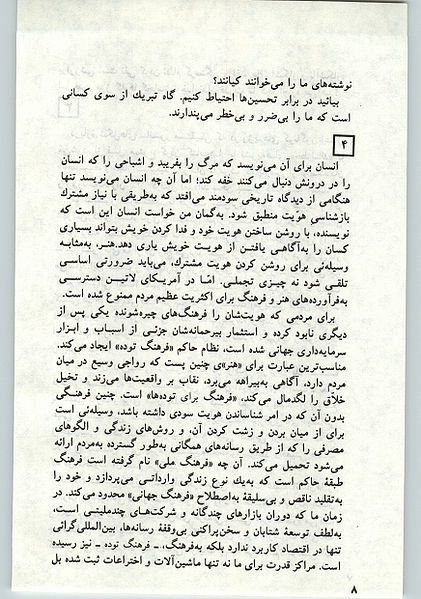 نوشته‌های ما را می‌خوانند کیانند؟
بیائید در برابر تحسین‌ها احتیاط کنیم. گاه تبریك از سوی کسانی
است که ما را بی‌ضرر و بی‌خطر می‌پندارند.
۴
انسان برای آن می‌نویسد که مرگ را بفریبد و اشباحی را که انسان
را در درونش دنبال می‌کنند خفه کند؛ اما آن چه انسان می‌نویسد تنها
هنگامی از دیدگاه تاریخی سودمند می‌افتد که به‌طریقی با نیاز مشترك
بازشناسیِ هویّت منطبق شود. به‌گمان من خواست انسان این است که
نویسنده، با روشن ساختن هویت خود و فدا کردن خویش بتواند بسیاری
کسان را به‌آگاهی یافتن از هویت خویش یاری دهد.هنر، به‌مثابه
وسیله‌ئی برای روشن کردن هویت مشترك، می‌باید ضرورتی اساسی
تلقی شود نه چیزی تجملی. امّا در آمریکای لاتین دسترسی
به‌فرآورده‌های هنر و فرهنگ برای اکثریت عظیم مردم ممنوع شده است.
برای مردمی که هویت‌شان را فرهنگ‌های چیره‌شونده یکی پس از
دیگری نابود کرده و استثمار بیرحمانه‌شان جزئی از اسباب و ابزار
سرمایه‌داری جهانی شده است، نظام حاکم «فرهنگ توده» ایجاد می‌کند.
مناسب‌ترین عبارت برای «هنر»ی چنین پست که رواجی وسیع در میان
مردم دارد، آگاهی به‌بیراهه می‌برد، نقاب بر واقعیت‌ها می‌زند و تخیل
خلاق را لگدمال می‌کند، «فرهنگ برای توده‌ها» است. چنین فرهنگی
بدون آن که در امر شناساندن هویت سودی داشته باشد، وسیله‌ئی است
برای از میان بردن و زشت کردن آن، و روش‌های زندگی و الگوهای
مصرفی را که از طریق رسانه‌های همگانی به‌طور گسترده به‌مردم ارائه
می‌شود تحمیل می‌کند. آن چه «فرهنگ ملی» نام گرفته است فرهنگ
طبقهٔ حاکم است که به‌یك نوع زندگی وارداتی می‌پردازد و خود را
به‌تقلید ناقص و بی‌سلیقهٔ به‌اصطلاح «فرهنگ جهانی» محدود می‌کند. در
زمان ما که دوران بازارهای چندگانه و شرکت‌های چندملیتی است،
به‌لطف توسعهٔ شتابان و سخن‌پراکنی بی‌وقفهٔ رسانه‌ها، بین‌المللی‌گرائی
تنها در اقتصاد کاربرد ندارد بلکه به‌فرهنگ، ـ فرهنگ توده ـ نیز رسیده
است. مراکز قدرت برای ما نه تنها ماشین‌آلات و اختراعات ثبت شده بل
۸